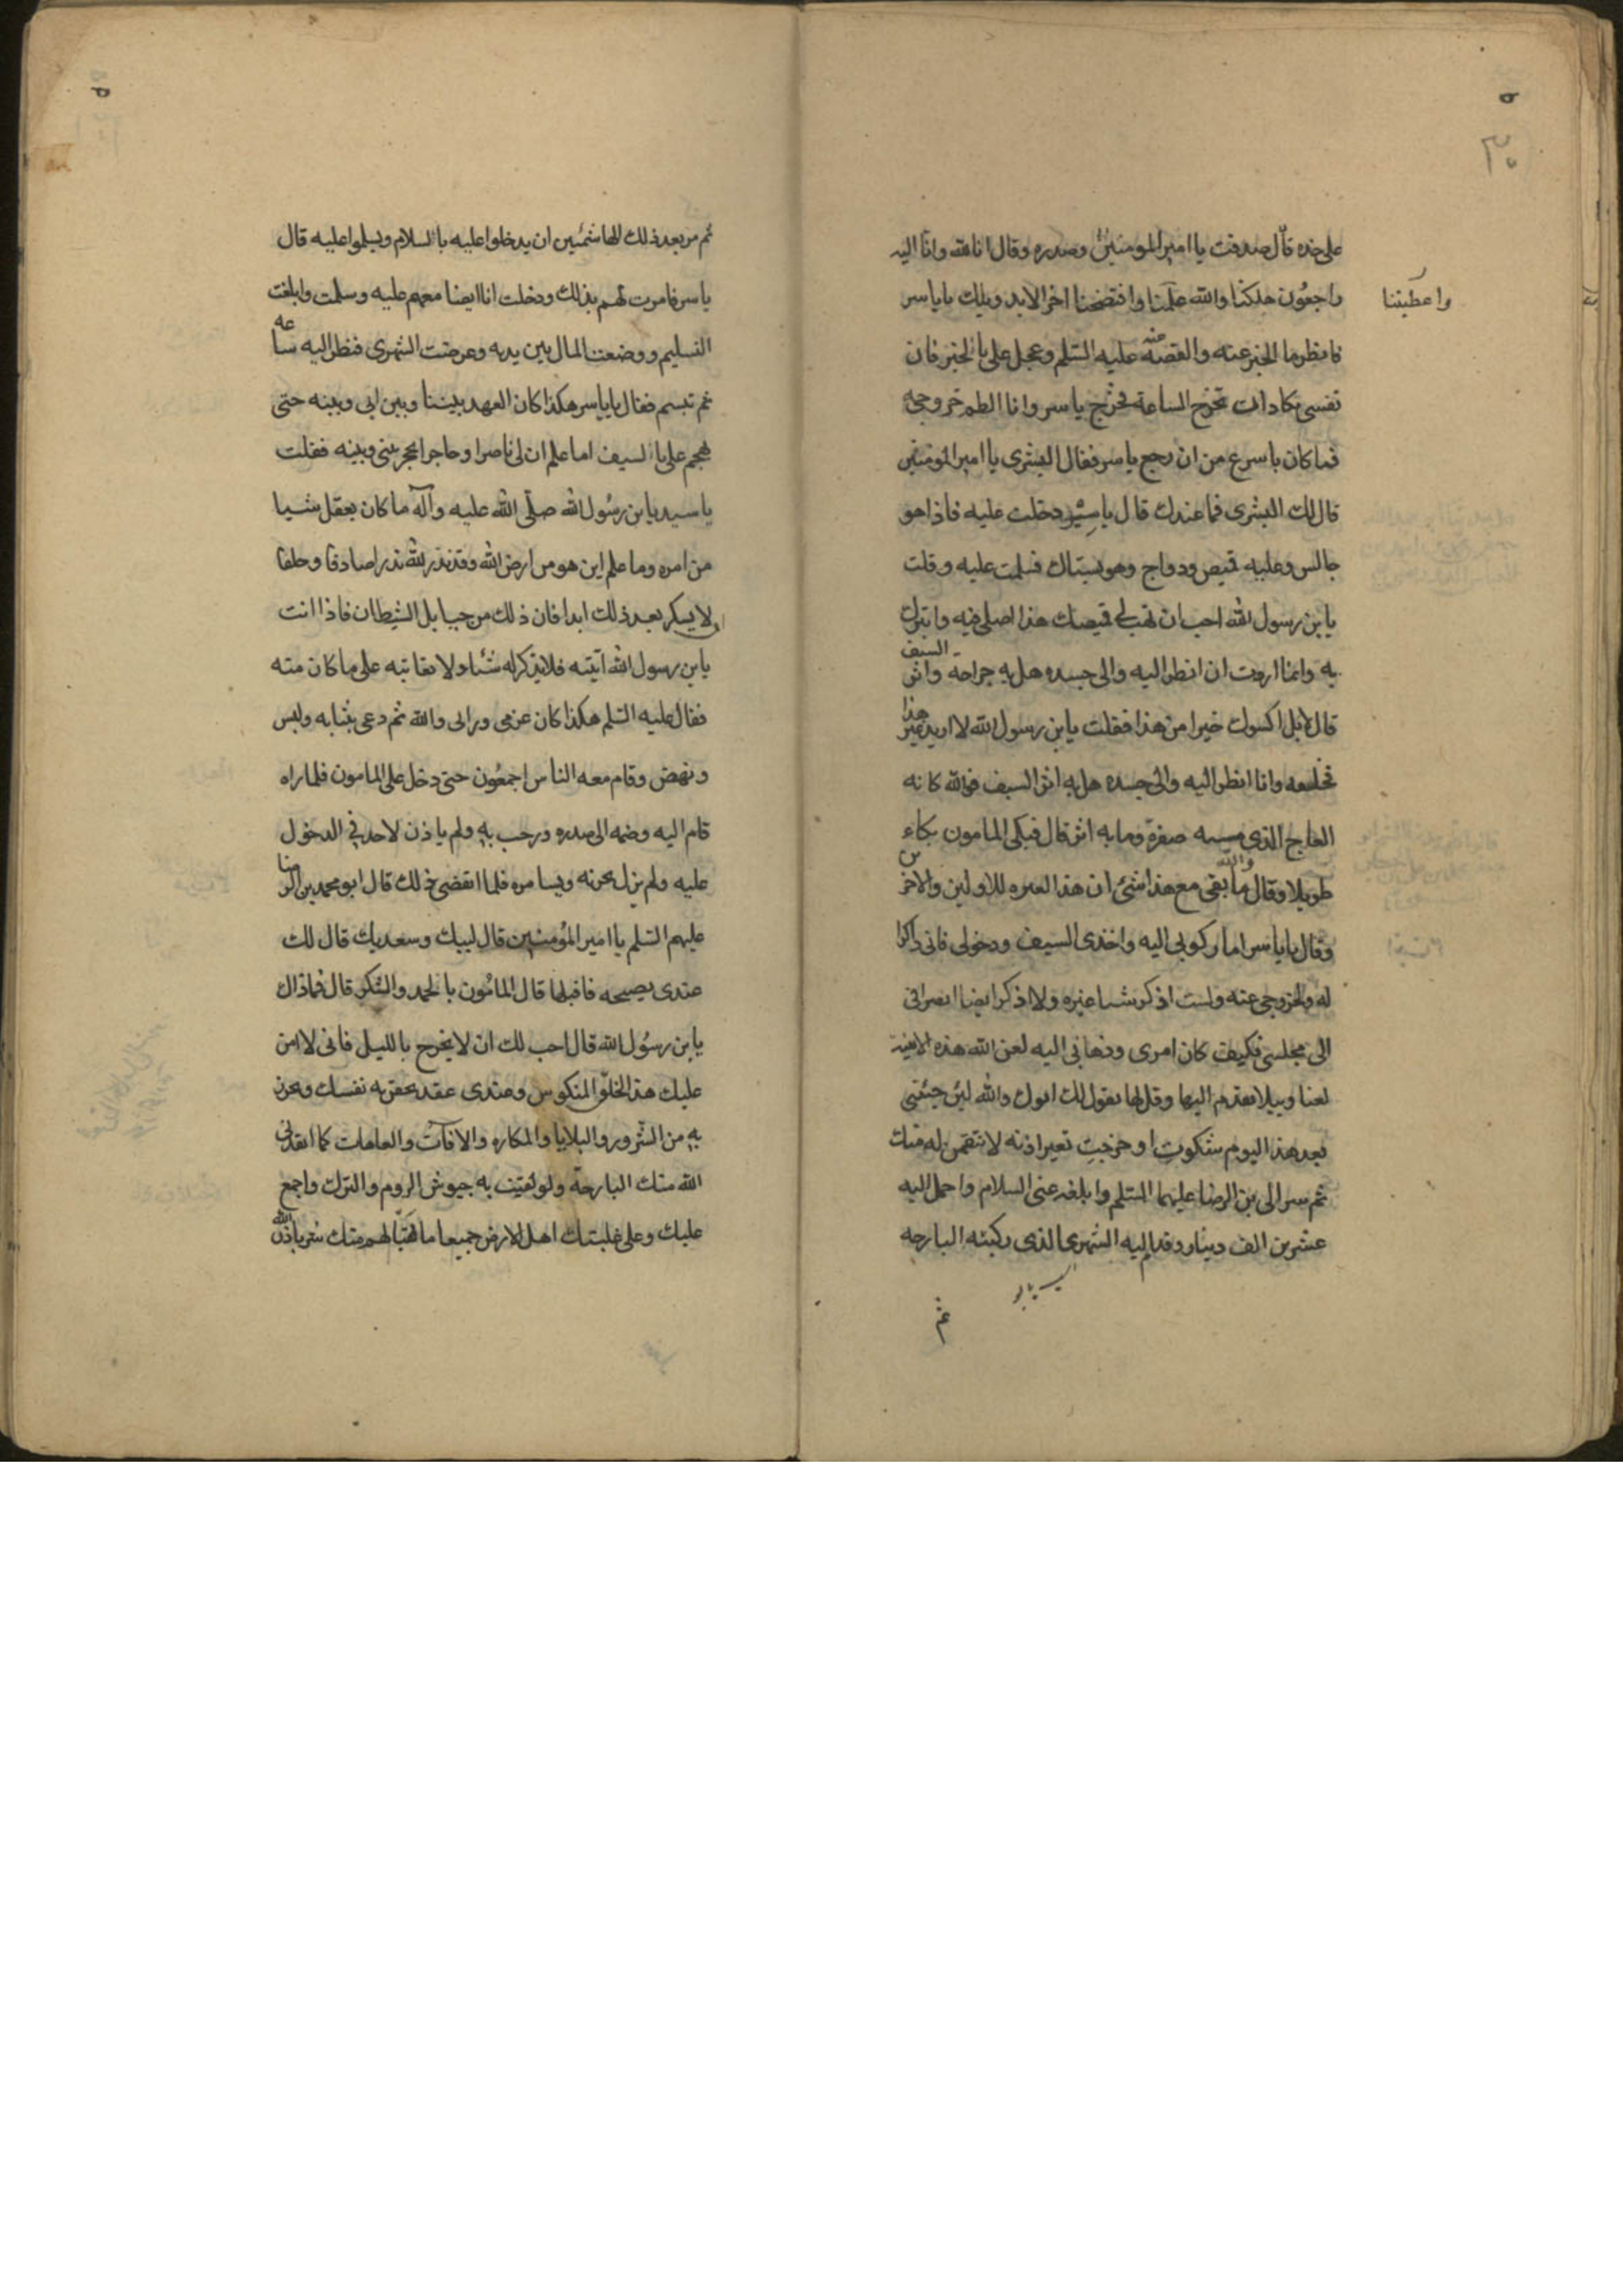 على خده قال صدقت يا امير المومنين وصدره وقال انا لله وانا اليه
راجعون هلكنا والله علمنا وافتضحنا اخر الابد ويلك يا ياسر
واعطبنا
فانظر ما الخبر عنه والقصه عنه عليه السلم وعجل على بالخبر فان
نفسى تكاد ان تخرج الساعة فخرج ياسر وانا الطم حر وجهى
فما كان باسرع من ان رجع ياسر فقال البشرى يا امير المومنين
قال لك البشرى فما عندك قال يا سيدى دخلت عليه فاذا هو
جالس وعليه قميص ودواج وهو يستاك فسلمت عليه وقلت
يا بن رسول الله احب ان تهب لى قميصك هذا اصلى فيه واتبرك
به وانما اردت ان انظر اليه والى جسده هل به جراحه واثر السيف
قال لا بل اكسوك خيرا من هذا فقلت يا بن رسول الله لا اريد غير هذا
فخلعه وانا انظر اليه والى جسده هل به اثر السيف فوالله كانه
العاج الذى مسه صفرة وما به اثر قال فبكى المامون بكاء
طويلا وقال والله ما بقى مع هذا شئ ان هذا العبره للاولين والاخرين
وقال يا ياسر اما ركوبى اليه واخذى السيف ودخولى فانى ذاكرا
له ولخروجى عنه ولست اذكر شيا غيره ولا اذكر ايضا انصرافى
الى مجلسى فكيف كان امرى وذهابى اليه لعن الله هذه الابنة
لعنا وبيلا تقدم اليها وقل لها يقول لك ابوك والله لئن جئتنى
بعد هذا اليوم شكوت او خرجت بغير اذنه لانتقمن له منك
ثم سر الى بن الرضا عليهما السلم وابلغه عنى السلام واحمل اليه
عشرين الف دينار وقد اليه الشهرى الذى ركبته البارحه
ثم
ثم من بعد ذلك الهاشمئين ان يدخلوا عليه بالسلام ويسلموا عليه قال
ياسر فامرت لهم بذلك ودخلت انا ايضا معهم عليه وسلمت وابلغت
التسليم ووضعت المال بين يديه وعرضت الشهرى فنظر اليه ساعه
ثم تبسم فقال يا ياسر هكذا كان العهد بيننا وبين ابى وبينه حتى
هجم على بالسيف اما علم ان لى ناصرا وحاجزا يحجز بينى وبينه فقلت
يا سيد يا بن رسول الله صلى الله عليه وآله ما كان يعقل شيا
من امره وما علم اين هو من ارض الله وقد نذر لله نذرا صادقا وحلفا
لا يسكر بعد ذلك ابدا فان ذلك من حبايل الشيطان فاذا انت
يا بن رسول الله آتيته فلا تذكر له شئا ولا تعاتبه على ما كان منه
فقال عليه السلم هكذا كان عزمى ورائى والله ثم دعى بثيابه ولبس
ونهض وقام معه الناس اجمعون حتى دخل على المامون فلما راه
قام اليه وضمه الى صدره ورحب به ولم ياذن لاحد فى الدخول
عليه ولم يزل يحدثه ويسامره فلما انقضى ذلك قال ابو محمد بن الرضا
عليهم السلم يا امير المؤمنين قال لبيك وسعديك قال لك
عندى نصيحه فاقبلها قال المامون بالحمد والشكر قال فما ذاك
يا بن رسول الله قال احب لك ان لا تخرج بالليل فانى لا امن
عليك هذا الخلق المنكوس وعندى عقد تحصن به نفسك وتحرز
به من الشرور والبلايا والمكاره والافات والعاهات كما انقذنى
الله منك البارحة ولو لقيت به جيوش الروم والترك واجمع
عليك وعلى غلبتك اهل الارض جميعا ما تهيّا لهم منك شر باذن الله